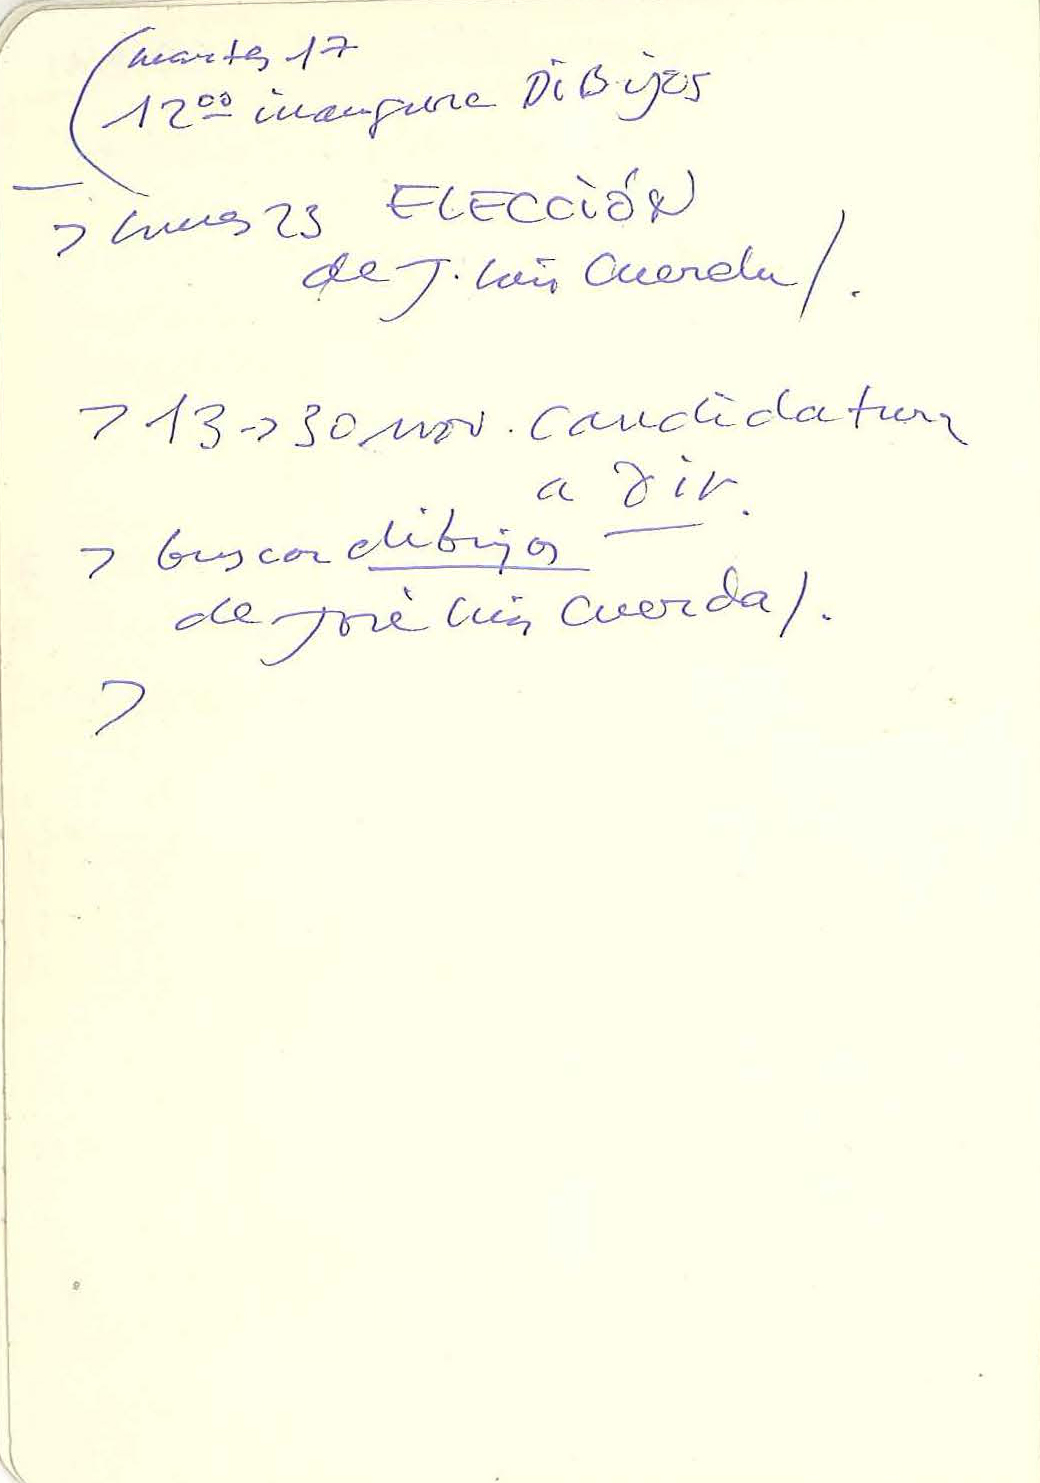 martes 17
12⁰⁰ inaugura DiBujos
> lunes 23 ELECCióN
de J. Luis Cuerda/.
> 13 -> 30 nov. candidatura
a dir.
> buscar dibujos
de José Luis Cuerda/.
>